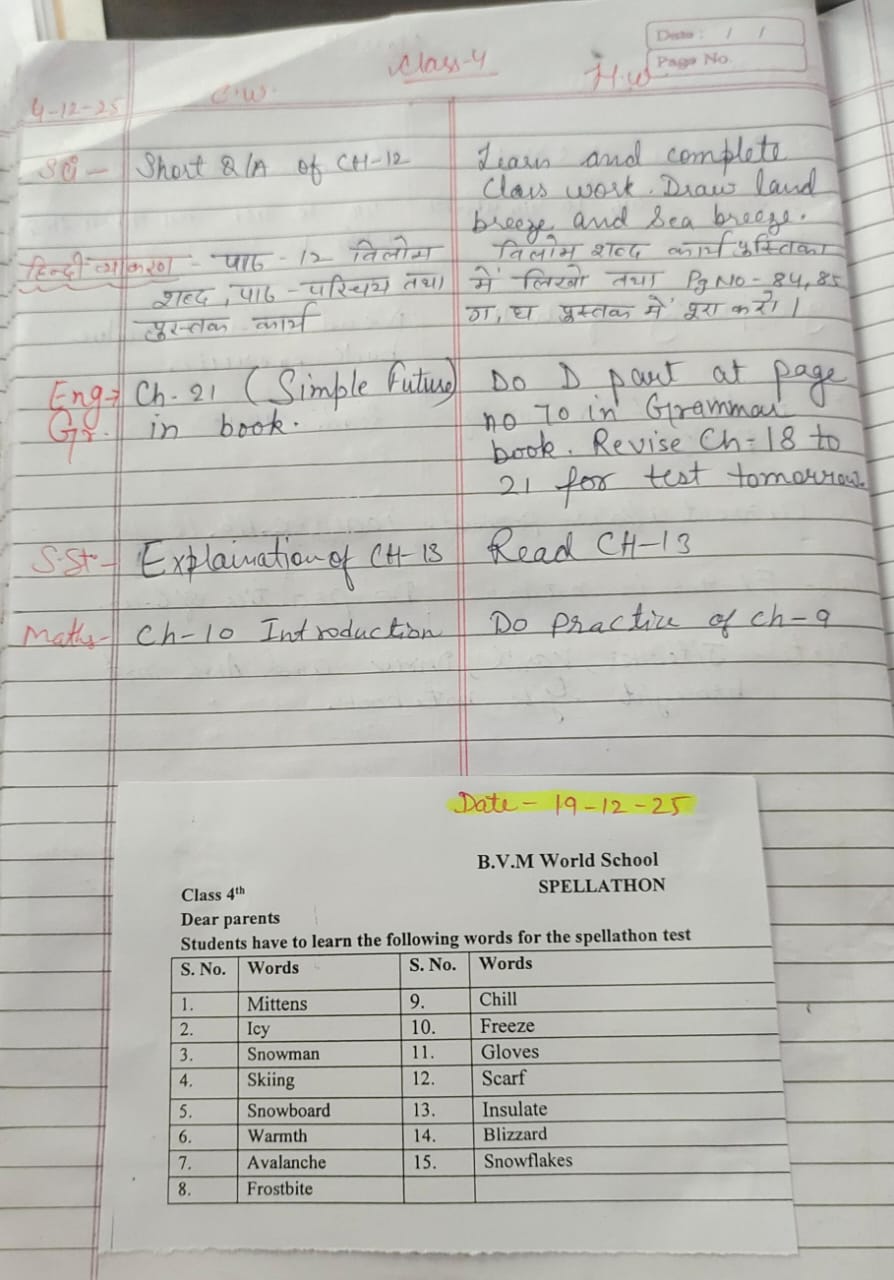 Date : / /
Page No.
Class-4
4-12-25 C.W. H.W
Sci - Short Q/A of CH-12
Learn and complete
Class work. Draw land
breeze and Sea breeze.
हिन्दी व्याकरण - पाठ - 12 विलोम
शब्द, पाठ - परिचय तथा
पुस्तक कार्य
विलोम शब्द कार्य पुस्तिका
में लिखो तथा Pg No - 84, 85
ग, घ पुस्तक में पूरा करो।
Eng→ Ch-21 (Simple Future)
Gr. in book.
Do D part at page
no 70 in Grammar
book. Revise Ch-18 to
21 for test tomorrow.
S.St.- Explaination of CH-13
Read CH-13
Maths- Ch-10 Introduction
Do Practice of ch-9
Date - 19-12-25
B.V.M World School
SPELLATHON
Class 4th
Dear parents
Students have to learn the following words for the spellathon test
S. No. Words S. No. Words
1. Mittens 9. Chill
2. Icy 10. Freeze
3. Snowman 11. Gloves
4. Skiing 12. Scarf
5. Snowboard 13. Insulate
6. Warmth 14. Blizzard
7. Avalanche 15. Snowflakes
8. Frostbite